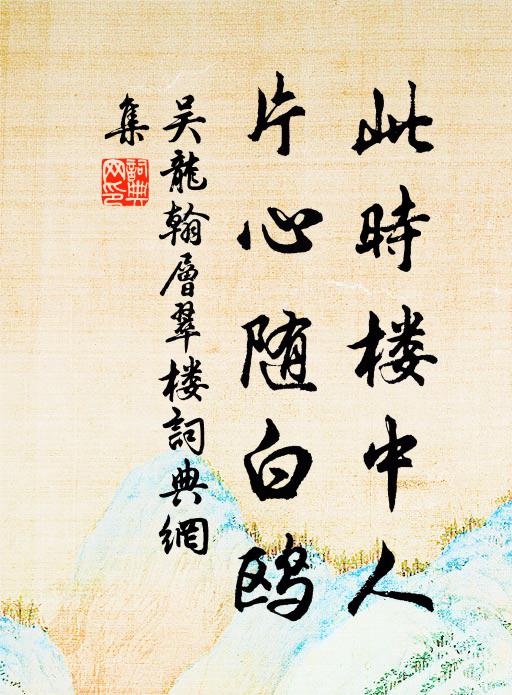 此时楼中人
片心随白鸥
吴龍翰層翠楼詞典網
集
詞典网印